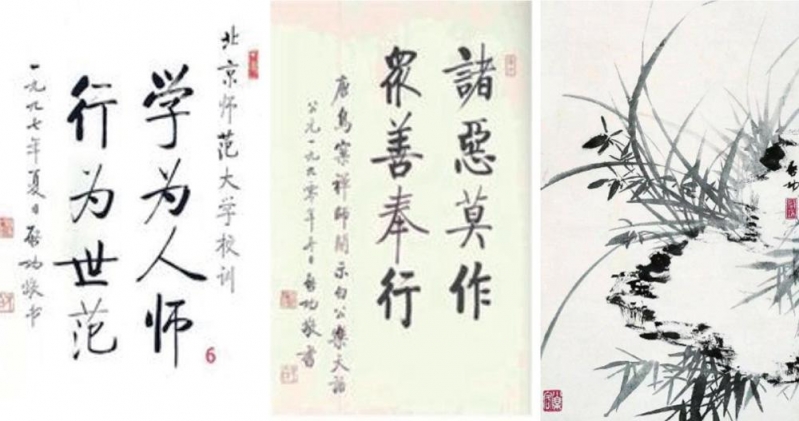 北京师范大学校训
学为人师
行为世范
一九九七年夏日启功敬书
6
諸惡莫作
眾善奉行
唐鳥窠禅師開示白公樂天語
公元一九零年日启功敬書
启功